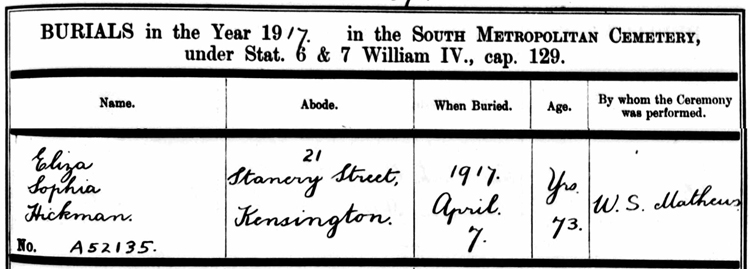 BURIALS in the Year 1917. in the SOUTH METROPOLITAN CEMETERY,
under Stat. 6 & 7 William IV., cap. 129.
Name. Abode. When Buried. Age. By whom the Ceremony was performed.
Eliza
Sophia
Hickman.
No. A52135.
21
Stanery Street,
Kensington.
1917.
April.
7.
Yrs.
73.
W. S. Mathews